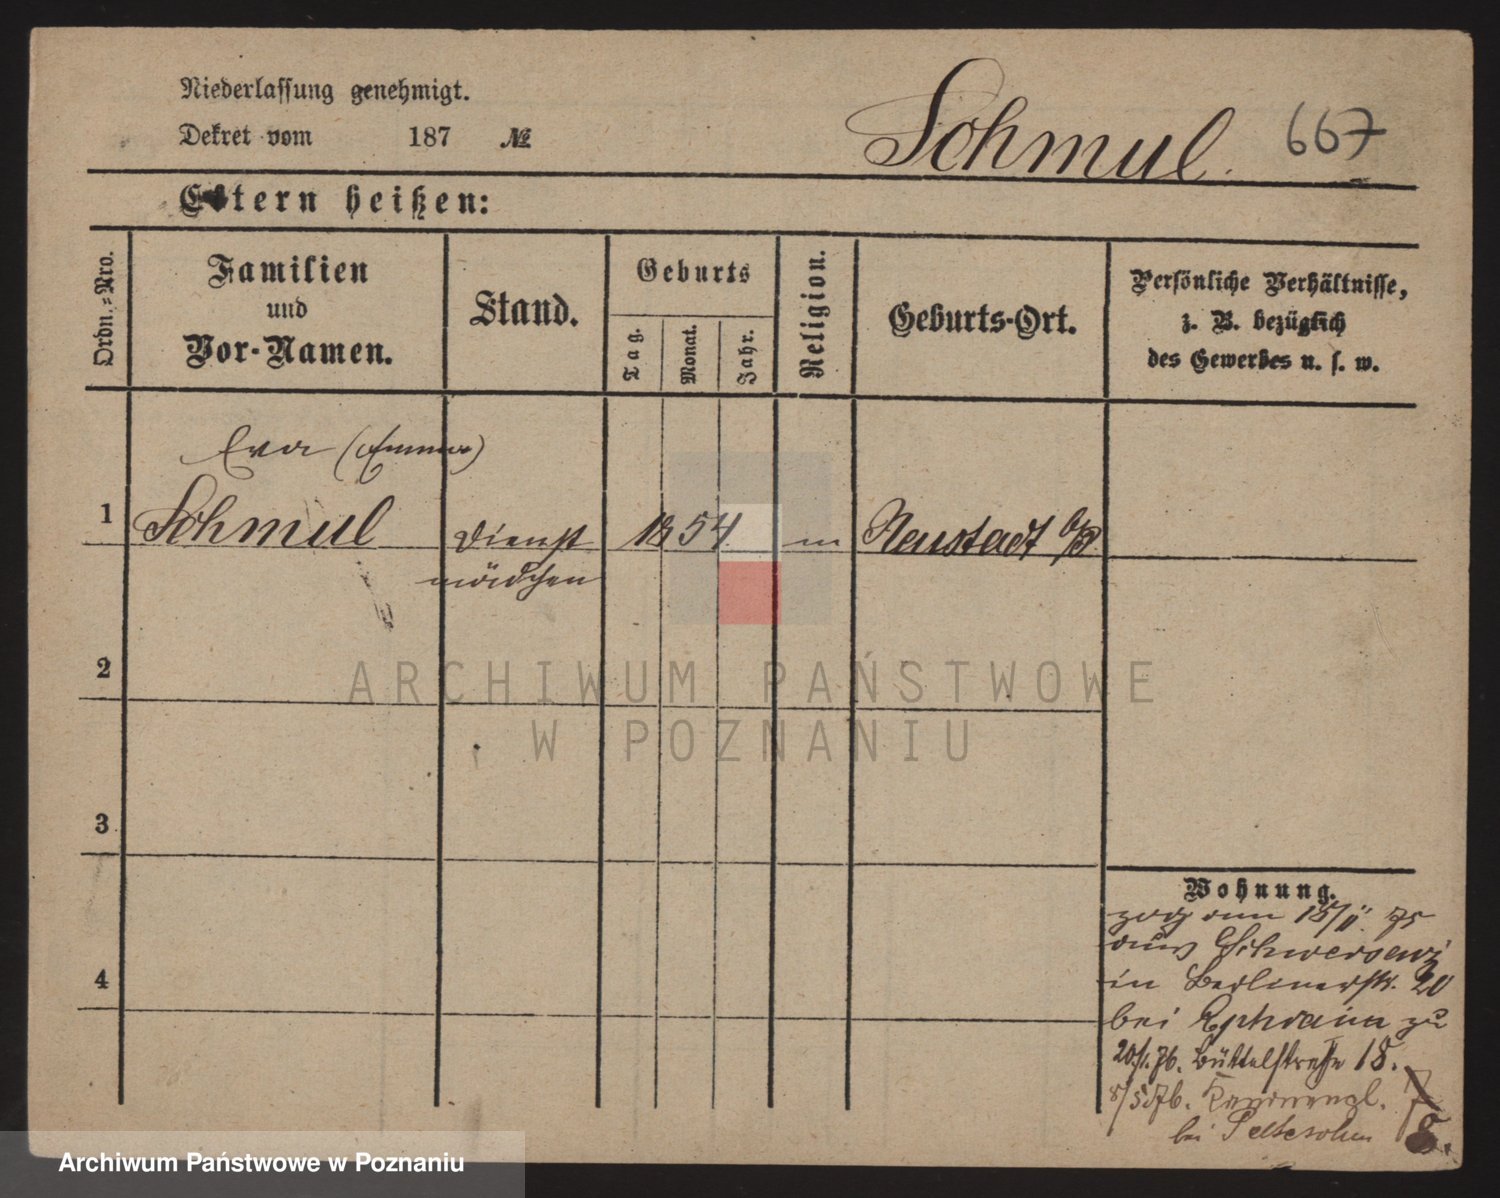 Niederlassung genehmigt.
Dekret vom 187 №
Schmul. 667
Eltern heißen:
Ordn.-Nro.
Familien
und
Vor-Namen.
Stand.
Geburts
Tag.
Monat.
Jahr.
Religion.
Geburts-Ort.
Persönliche Verhältnisse,
z. B. bezüglich
des Gewerbes u. s. w.
Eva (Emma)
1 Schmul Dienst 1854 m Neustadt b/P
mädchen
2
ARCHIWUM PAŃSTWOWE
W POZNANIU
3
4
Wohnung.
zog am 15/11. 75
aus Schwersenz
in Berlinerstr. 20
bei Ephraim zu
20/1. 76. Büttelstraße 18.
8/5 76. 7
bei 8.
Archiwum Państwowe w Poznaniu